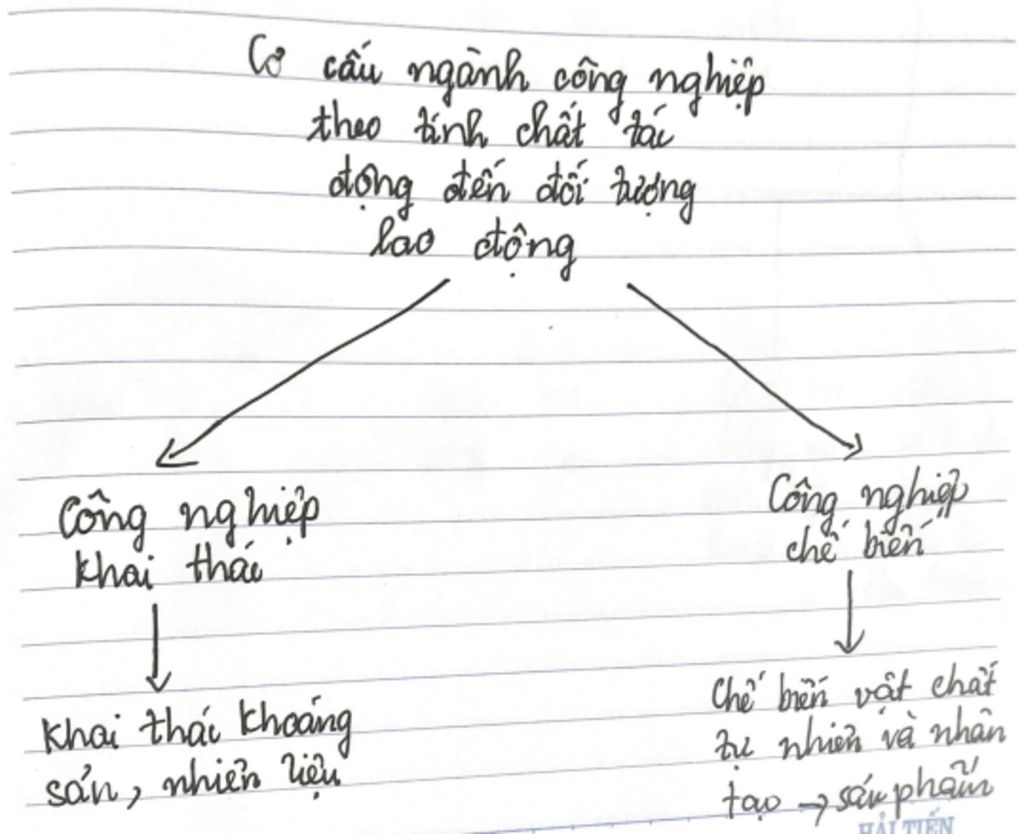 Cơ cấu ngành công nghiệp
theo tính chất tác
động đến đối tượng
lao động
Công nghiệp
khai thác
Công nghiệp
chế biến
Khai thác khoáng
sản, nhiên liệu
Chế biến vật chất
tự nhiên và nhân
tạo → sản phẩm
HẢI TIẾN